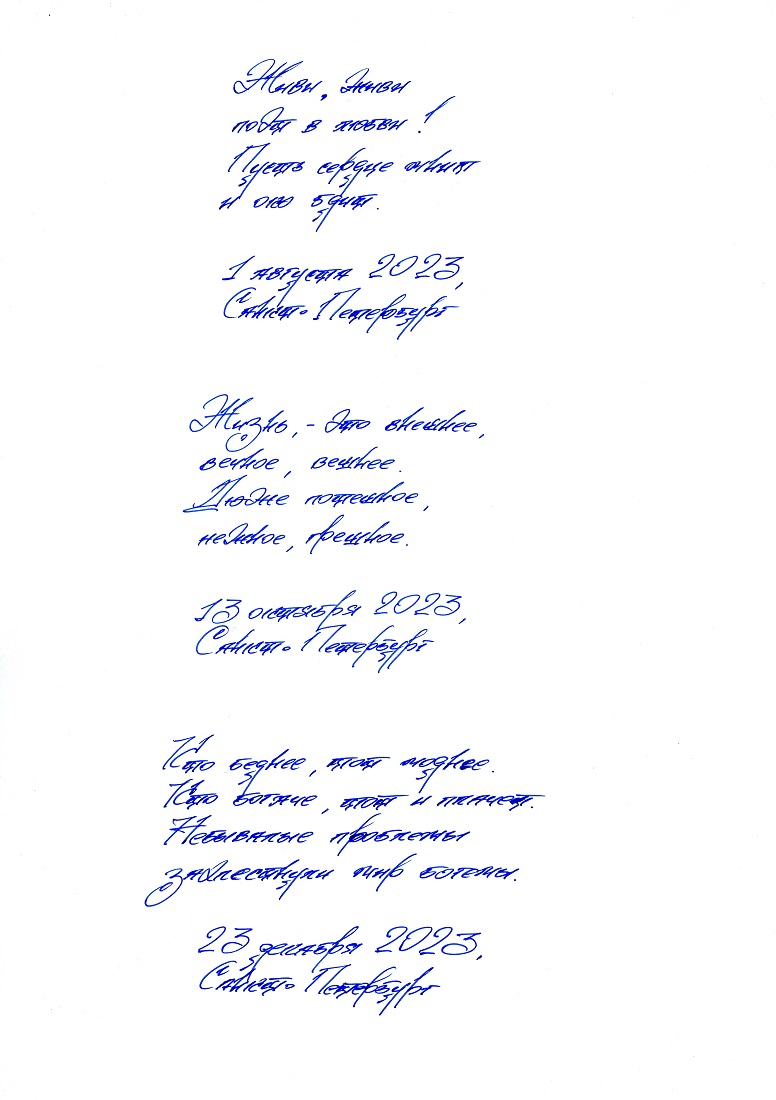 Живи, живи
пойти в любви!
Пусть сердце мчит
и око бдит.
1 августа 2023,
Санкт-Петербург
Жизнь, - это внешнее,
вечное, вешнее.
Людие потешное,
нежное, грешное.
13 октября 2023,
Санкт-Петербург
Кто беднее, тот моднее.
Кто богаче, тот и плачет.
Небывалые проблемы
захлестнули мир богемы.
23 декабря 2023,
Санкт-Петербург